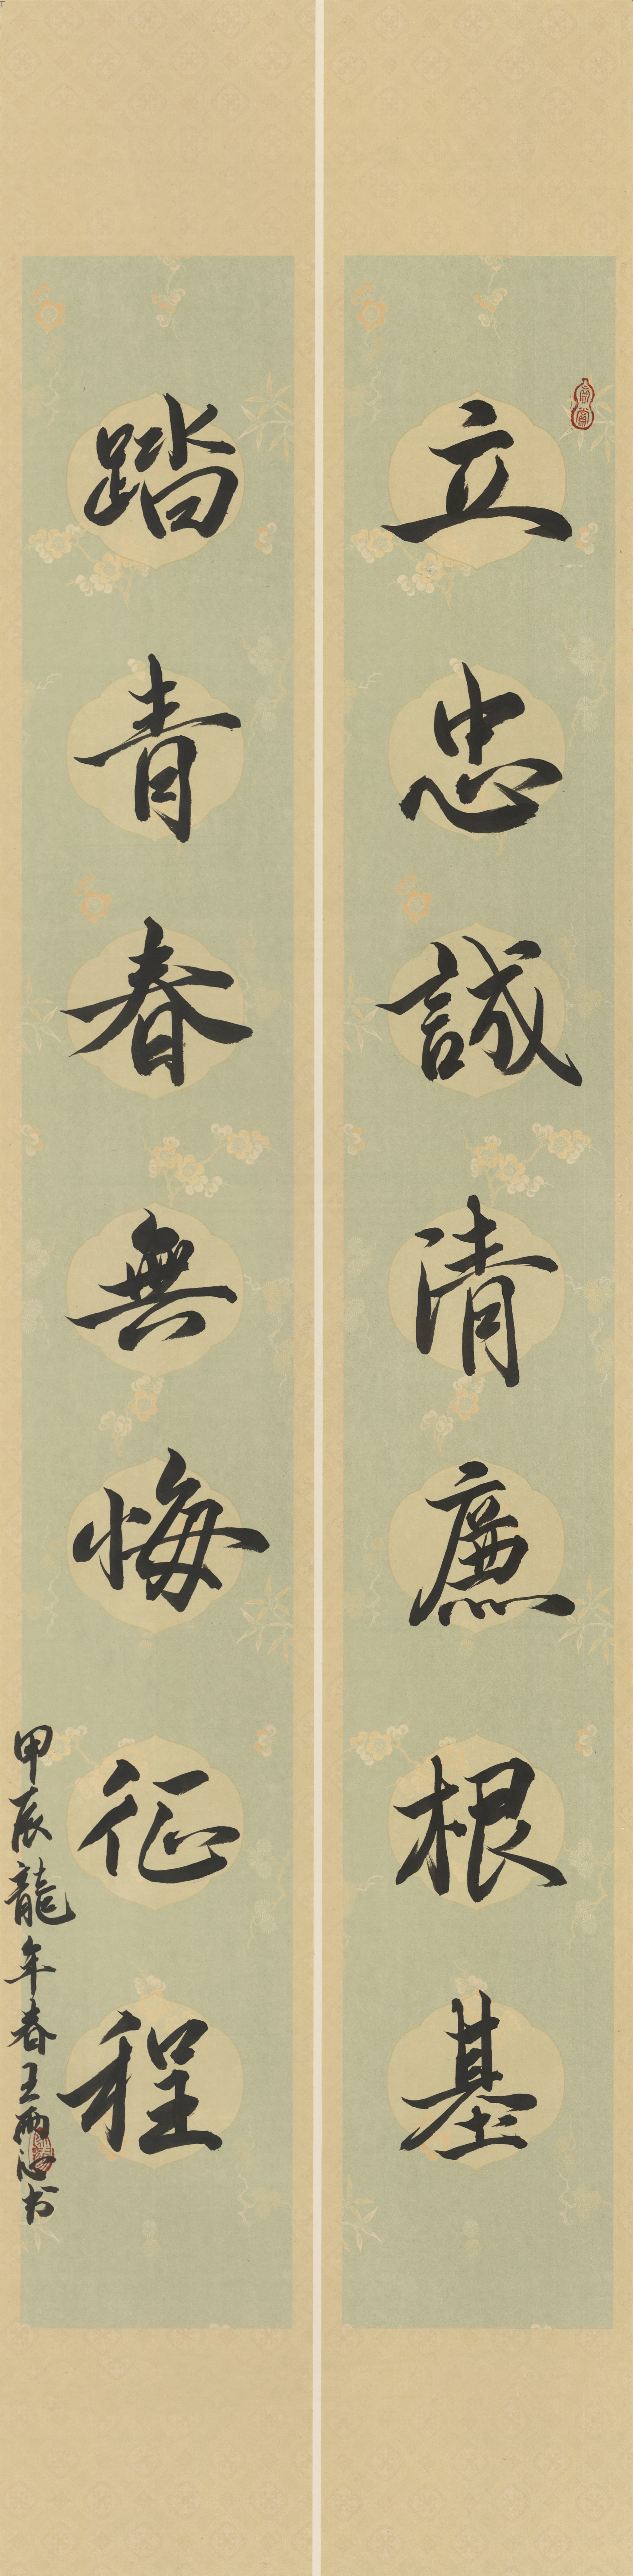 立忠誠清廉根基
踏青春無悔征程
甲辰龍年春王雨沁书